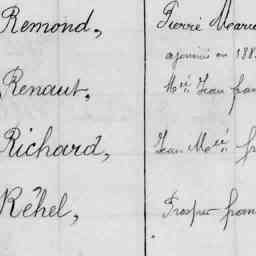 Remond, Pierre Marie
ajourné en 188
Renaut, Mie Jean fran
Richard, Jean Mie f
Réhel, Prosper fran